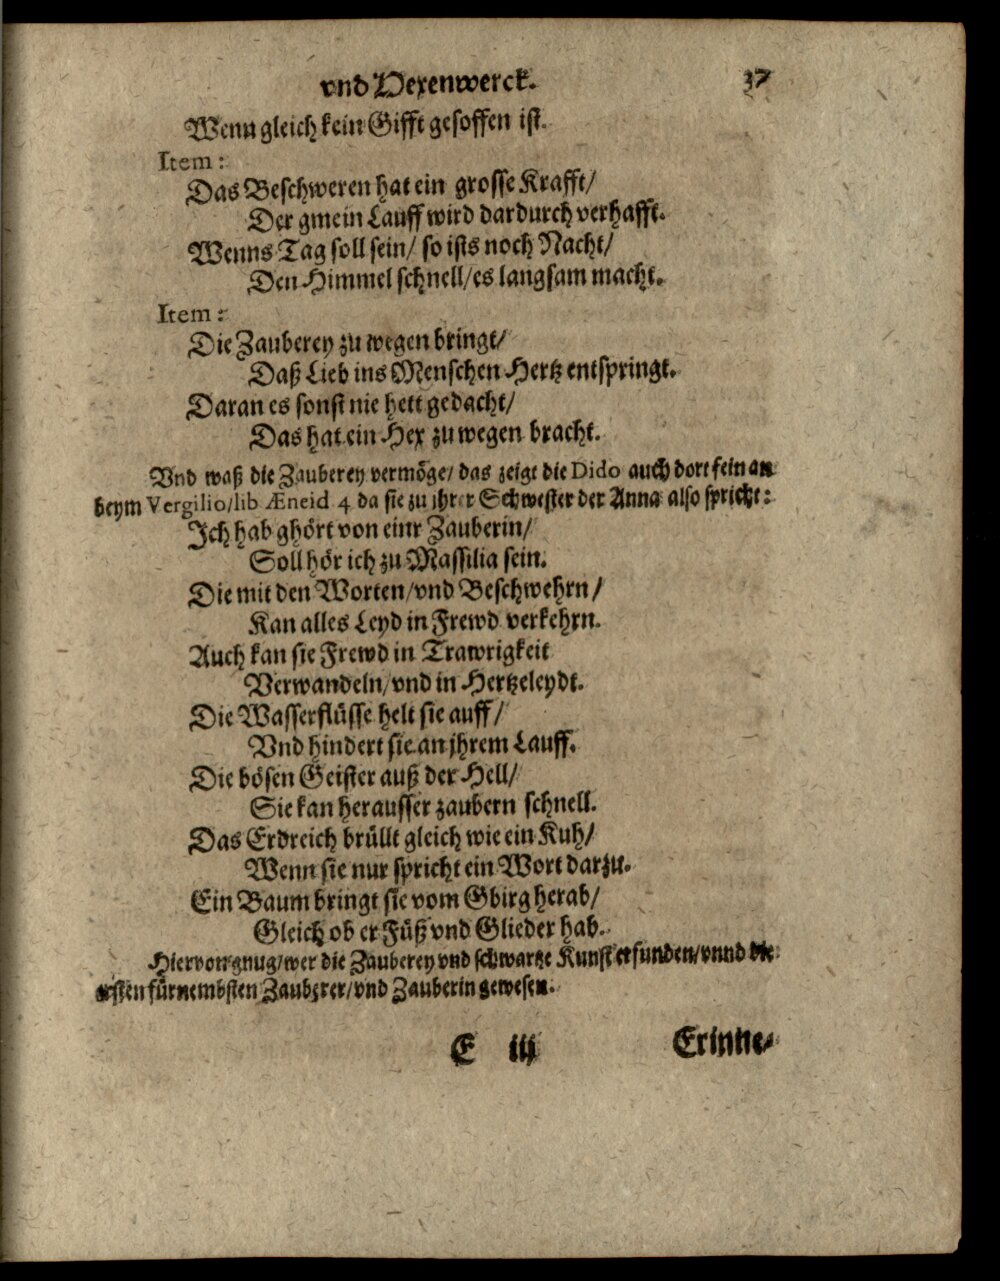 vnd Hexenwerck. 37
Wenn gleich kein Gifft gesoffen ist.
Item:
Das Beschweren hat ein grosse Krafft/
Der gmein Lauff wird dardurch verhafft.
Wenns Tag soll sein/ so ists noch Nacht/
Den Himmel schnell/es langsam macht.
Item:
Die Zauberey zu wegen bringt/
Daß Lieb ins Menschen Hertz entspringt.
Daran es sonst nie hett gedacht/
Das hat ein Hex zu wegen bracht.
Vnd waß die Zauberey vermöge/ das zeigt die Dido auch dort fein an
beym Vergilio/lib Æneid 4 da sie zu jhrer Schwester der Anna also spricht:
Ich hab ghört von einr Zauberin/
Soll hör ich zu Massilia sein.
Die mit den Worten/vnd Beschwehrn/
Kan alles Leyd in Frewd verkehrn.
Auch kan sie Frewd in Trawrigkeit
Verwandeln/vnd in Hertzeleydt.
Die Wasserflüsse helt sie auff/
Vnd hindert sie an jhrem Lauff.
Die bösen Geister auß der Hell/
Sie kan herausser zaubern schnell.
Das Erdreich brüllt gleich wie ein Kuh/
Wenn sie nur spricht ein Wort darzu.
Ein Baum bringt sie vom Gbirg herab/
Gleich ob er Füß vnd Glieder hab.
Hiervon gnug/wer die Zauberey vnd schwartze Kunst erfunden/vnnd die
ersten fürnembsten Zauberer/vnd Zauberin gewesen.
E iij Erinne-